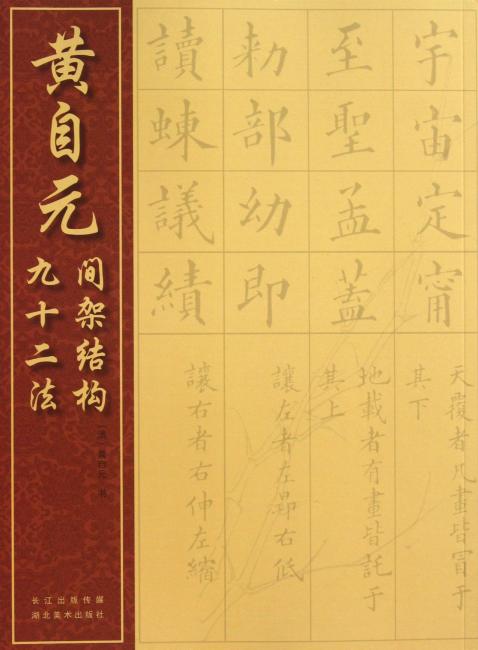 黄自元
间架结构
九十二法
（清）黄自元 书
长江出版传媒
湖北美术出版社
宇宙定甯
天覆者凡畫皆冒于
其下
至聖孟蓋
地載者有畫皆託于
其上
勑部幼即
讓左者左昻右低
讀蝀議績
讓右者右伸左縮